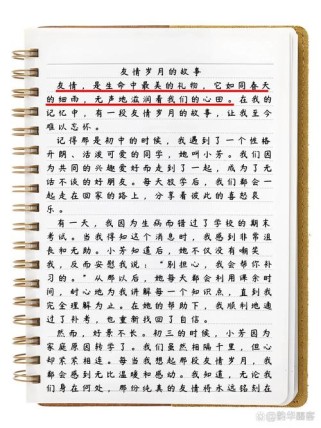 友情岁月的故事
友情，是生命中最美的礼物，它如同春天
的细雨，无声地滋润着我们的心田。在我的
记忆中，有一段友情岁月的故事，让我至今
难以忘怀。
记得那是初中的时候，我遇到了一个性格
开朗、活泼可爱的同学，她叫小芳。我们因
为共同的兴趣爱好而走到了一起，成为了无
话不谈的好朋友。每天放学后，我们都会一
起走在回家的路上，分享着彼此的喜怒哀
乐。
有一天，我因为生病而错过了学校的期末
考试。当我得知这个消息时，我感到非常沮
丧和无助。小芳知道后，她不仅没有嘲笑
我，反而安慰我说：“别担心，我会帮你补
习的。”从那以后，她每天都会利用课余时
间，耐心地为我讲解每一个知识点，直到我
完全理解为止。在她的帮助下，我顺利地通
过了补考，也重新找回了自信。
然而，好景不长。初三的时候，小芳因为
家庭原因转学了。我们虽然相隔千里，但心
却紧紧相连。每当我想起那段友情岁月，我
都会感到无比温暖和感动。我知道，无论我
们身在何处，那份纯真的友情将永远铭刻在